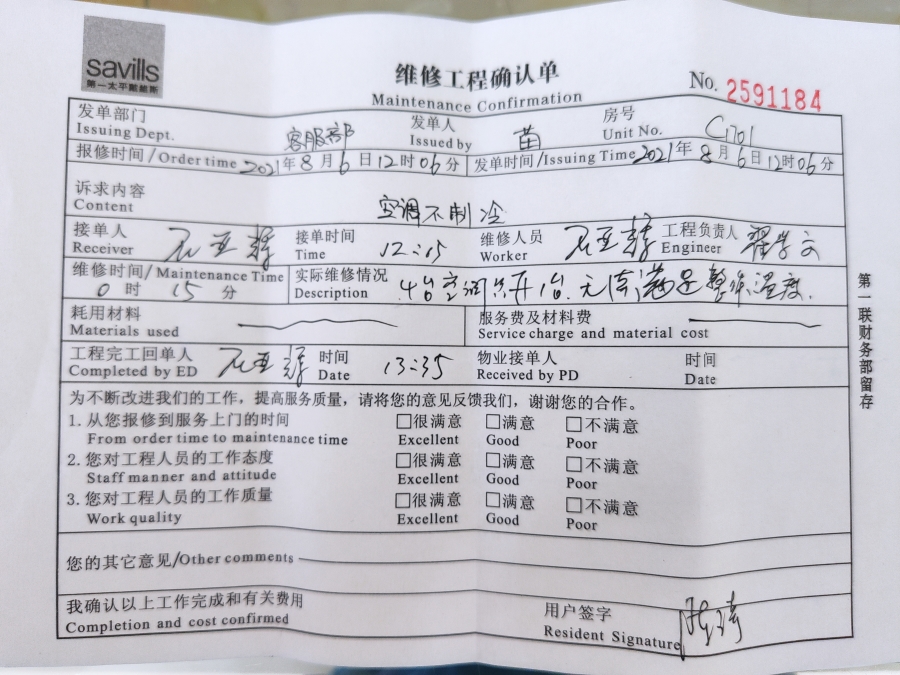 savills
第一太平戴维斯
维修工程确认单
Maintenance Confirmation
No. 2591184
发单部门 客服部 发单人 苗 房号 C1701
Issuing Dept. Issued by Unit No.
报修时间/Order time 2021年8月6日12时06分 发单时间/Issuing Time 2021年8月6日12时06分
诉求内容
Content 空调不制冷
接单人 石亚辉 接单时间 12:15 维修人员 石亚辉 工程负责人
Receiver Time Worker Engineer
维修时间/Maintenance Time 实际维修情况
0时15分 Description 4台空调只开1台.无法满足整体温度.
耗用材料 服务费及材料费
Materials used Service charge and material cost
工程完工回单人 石亚辉 时间 13:35 物业接单人 时间
Completed by ED Date Received by PD Date
为不断改进我们的工作，提高服务质量，请将您的意见反馈我们，谢谢您的合作。
1. 从您报修到服务上门的时间 □很满意 □满意 □不满意
From order time to maintenance time Excellent Good Poor
2. 您对工程人员的工作态度 □很满意 □满意 □不满意
Staff manner and attitude Excellent Good Poor
3. 您对工程人员的工作质量 □很满意 □满意 □不满意
Work quality Excellent Good Poor
您的其它意见/Other comments
我确认以上工作完成和有关费用 用户签字
Completion and cost confirmed Resident Signature
第一联财务部留存